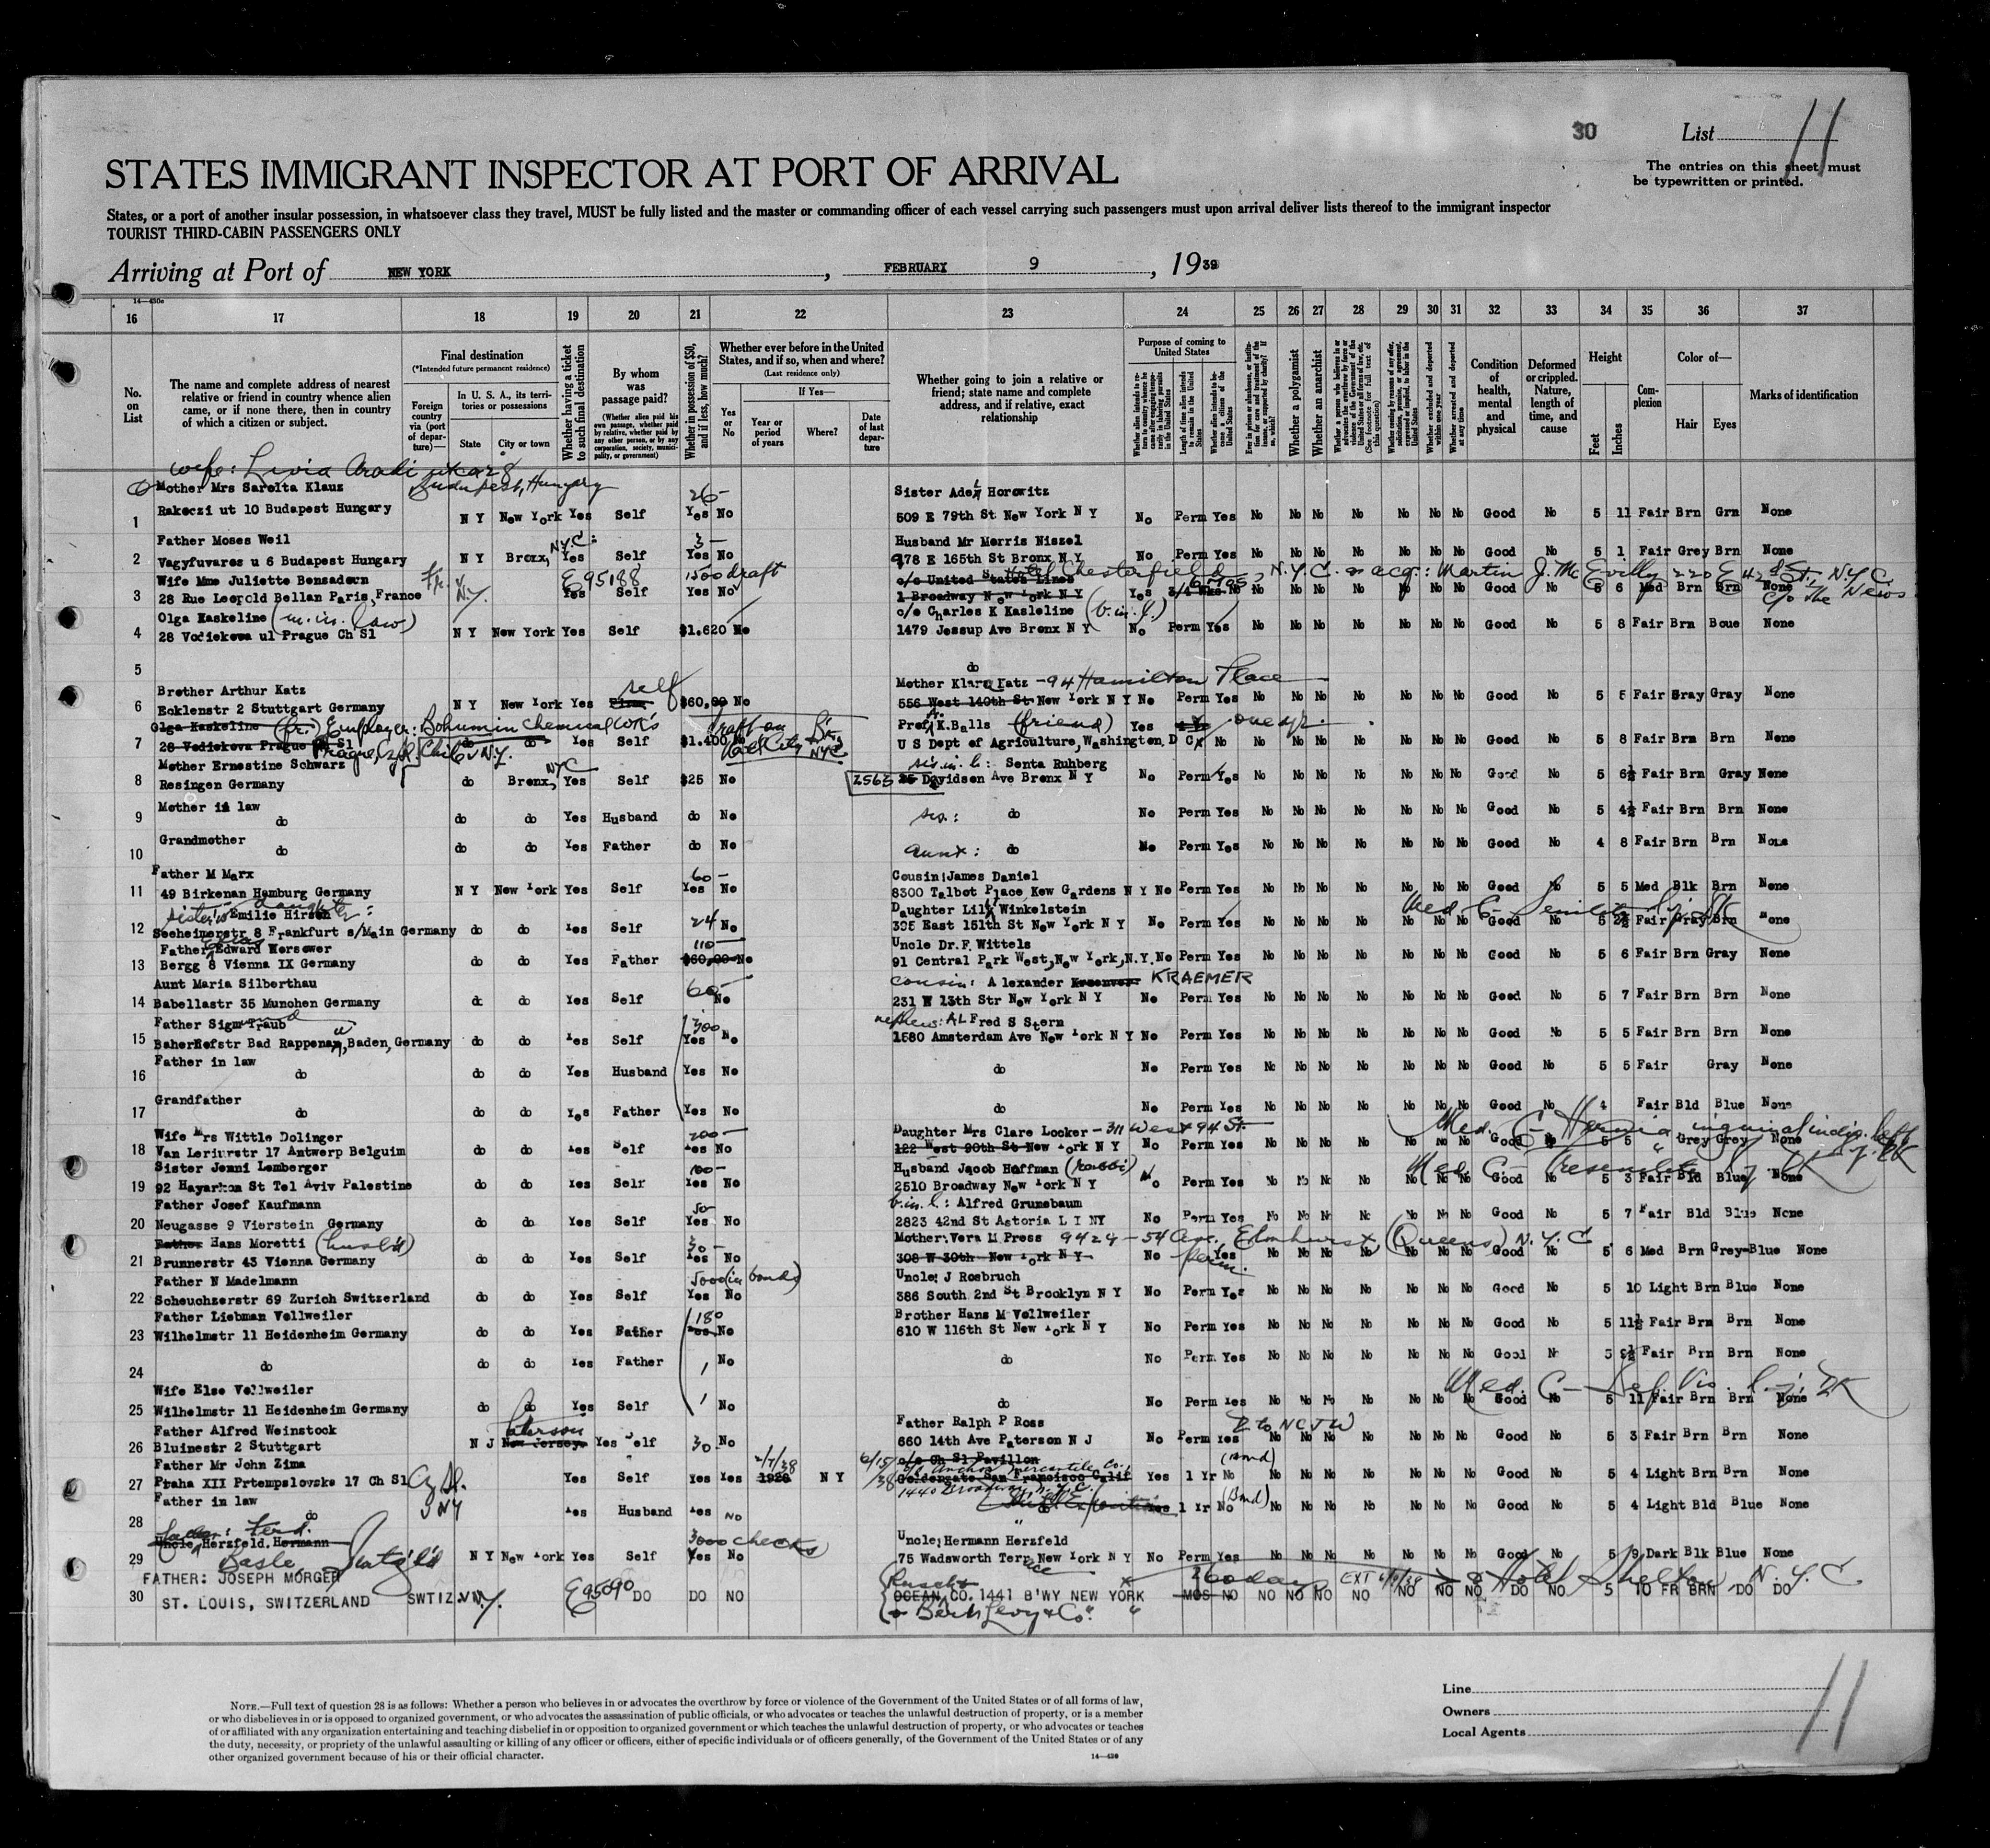 30
List 11
The entries on this sheet must
be typewritten or printed.
STATES IMMIGRANT INSPECTOR AT PORT OF ARRIVAL
States, or a port of another insular possession, in whatsoever class they travel, MUST be fully listed and the master or commanding officer of each vessel carrying such passengers must upon arrival deliver lists thereof to the immigrant inspector
TOURIST THIRD-CABIN PASSENGERS ONLY
Arriving at Port of NEW YORK, FEBRUARY 9, 1939
14—430e
16 17 18 19 20 21 22 23 24 25 26 27 28 29 30 31 32 33 34 35 36 37
No. on List
The name and complete address of nearest relative or friend in country whence alien came, or if none there, then in country of which a citizen or subject.
Final destination
(*Intended future permanent residence)
Foreign country via (port of departure)—
In U. S. A., its territories or possessions
State
City or town
Whether having a ticket to such final destination
By whom was passage paid?
(Whether alien paid his own passage, whether paid by relative, whether paid by any other person, or by any corporation, society, municipality, or government)
Whether in possession of $50, and if less, how much?
Whether ever before in the United States, and if so, when and where?
(Last residence only)
Yes or No
If Yes—
Year or period of years
Where?
Date of last departure
Whether going to join a relative or friend; state name and complete address, and if relative, exact relationship
Purpose of coming to United States
Whether a polygamist
Whether an anarchist
Condition of health, mental and physical
Deformed or crippled. Nature, length of time, and cause
Height
Feet
Inches
Complexion
Color of—
Hair
Eyes
Marks of identification
wife: Livia Aradi
Budapest, Hungary
Mother Mrs Sarolta Klauz 26— Sister Adel Horowitz
1 Rakoczi ut 10 Budapest Hungary N Y New York Yes Self Yes No 509 E 79th St New York N Y No Perm Yes No No No No No No No Good No 5 11 Fair Brn Grn None
Father Moses Weil N.Y.C. 3— Husband Mr Morris Niszel
2 Vagyfuvares u 6 Budapest Hungary N Y Bronx, Yes Self Yes No 978 E 165th St Bronx N Y No Perm Yes No No No No No No No Good No 5 1 Fair Grey Brn None
Wife Mme Juliette Bensadorn E95188 1500 draft c/o United States Lines Hotel Chesterfield, N.Y.C. acq: Martin J. McEvilly 220 E 42d St., N.Y.C.
3 28 Rue Leopold Bellan Paris, France N.Y. Yes Self Yes No 1 Broadway New York N Y Yes 3/4 Wks No No No No No No No No Good No 5 6 Med Brn Brn None c/o The News
Olga Kaskeline (m. in. law) c/o Charles K Kasleline (b. in. l.)
4 28 Vodickova ul Prague Ch Sl N Y New York Yes Self $1.620 No 1479 Jessup Ave Bronx N Y No Perm Yes No No No No No No No Good No 5 8 Fair Brn Boue None
5 do
Brother Arthur Katz self Mother Klara Katz — 94 Hamilton Place
6 Ecklenstr 2 Stuttgart Germany N Y New York Yes $60,00 No 556 West 140th St New York N Y No Perm Yes No No No No No No No Good No 5 5 Fair Gray Gray None
Olga Kaskeline (fr.) Employer: Bohumin Chemical Wk's draft on Prof. K. Balls (friend) Yes one yr.
7 28 Vodickova Prague Ch Sl do do Yes Self $1.400 No U S Dept of Agriculture, Washington, D C No No No No No No No No Good No 5 8 Fair Brn Brn None
Mother Ernestine Schwarz NYC sis. in. l.: Senta Ruhberg
8 Resingen Germany do Bronx, Yes Self $25 No 2565 Davidson Ave Bronx N Y No Perm Yes No No No No No No No Good No 5 6½ Fair Brn Gray None
Mother in law
9 do do do Yes Husband do No sis.: do No Perm Yes No No No No No No No Good No 5 4½ Fair Brn Brn None
Grandmother
10 do do do Yes Father do No aunt: do No Perm Yes No No No No No No No Good No 4 8 Fair Brn Brn None
Father M Marx 60— Cousin: James Daniel
11 49 Birkenan Hamburg Germany N Y New York Yes Self Yes No 8300 Talbot Place Kew Gardens N Y No Perm Yes No No No No No No No Good No 5 5 Med Blk Brn None
sister's daughter: Emilie Hirsch Daughter Lily Winkelstein Med C— Senility
12 Seeheimerstr 8 Frankfurt a/Main Germany do do Yes Self 24 No 395 East 151th St New York N Y No Perm Yes No No No No No No No Good No 5 2½ Fair Gray Brn None
Father Edward Worsower 110— Uncle Dr. F. Wittels
13 Bergg 8 Vienna IX Germany do do Yes Father $60,00 No 91 Central Park West, New York, N.Y. No Perm Yes No No No No No No No Good No 5 6 Fair Brn Gray None
Aunt Maria Silberthau 60— cousin: Alexander KRAEMER
14 Babellastr 35 Munchen Germany do do Yes Self No 231 W 13th Str New York N Y No Perm Yes No No No No No No No Good No 5 7 Fair Brn Brn None
Father Sigmund Traub 300 nephew: ALFred S Stern
15 Baherhofstr Bad Rappenau, Baden, Germany do do Yes Self Yes No 1580 Amsterdam Ave New York N Y No Perm Yes No No No No No No No Good No 5 5 Fair Brn Brn None
Father in law
16 do do do Yes Husband Yes No do No Perm Yes No No No No No No No Good No 5 5 Fair Gray None
Grandfather
17 do do do Yes Father Yes No do No Perm Yes No No No No No No No Good No 4 Fair Bld Blue None
Wife Mrs Wittle Dolinger 200— Daughter Mrs Clare Locker — 311 West 94 St. Med. C— Hernia inguinal indir. left
18 Van Leriusstr 17 Antwerp Belguim do do Yes Self Yes No 122 West 90th St New York N Y No Perm Yes No No No No No No No Good No 5 5 Grey Grey None
Sister Jenni Lemberger 100— Husband Jacob Hoffman (rabbi) Med C—
19 92 Hayarkon St Tel Aviv Palestine do do Yes Self Yes No 2510 Broadway New York N Y No Perm Yes No No No No No No No Good No 5 3 Fair Bld Blue None
Father Josef Kaufmann 50— b. in. l.: Alfred Grunebaum
20 Neugasse 9 Vierstein Germany do do Yes Self Yes No 2823 42nd St Astoria L I NY No Perm Yes No No No No No No No Good No 5 7 Fair Bld Blue None
Hans Moretti (husb'd) 30— Mother: Vera M Press 9424 — 54 Ave., Elmhurst (Queens) N.Y.C.
21 Brunnerstr 43 Vienna Germany do do Yes Self Yes No 308 W 30th New York N Y No Perm. Yes No No No No No No No Good No 5 6 Med Brn Grey-Blue None
Father N Madelmann 5000 (in bonds) Uncle: J Rosbruch
22 Scheuchzerstr 69 Zurich Switzerland do do Yes Self Yes No 386 South 2nd St Brooklyn N Y No Perm Yes No No No No No No No Good No 5 10 Light Brn Blue None
Father Liebman Vollweiler 180 Brother Hans M Vollweiler
23 Wilhelmstr 11 Heidenheim Germany do do Yes Father Yes No 610 W 116th St New York N Y No Perm Yes No No No No No No No Good No 5 11½ Fair Brn Brn None
24 do do do Yes Father No do No Perm Yes No No No No No No No Good No 5 Fair Brn Brn None
Wife Else Vollweiler Med. C— Def. Vis.
25 Wilhelmstr 11 Heidenheim Germany do do Yes Self No do No Perm Yes No No No No No No No Good No 5 11 Fair Brn Brn None
Father Alfred Weinstock Paterson Father Ralph P Ross to NCJW
26 Bluinestr 2 Stuttgart N J New Jersey Yes Self 30. No 660 14th Ave Paterson N J No Perm Yes No No No No No No No Good No 5 3 Fair Brn Brn None
Father Mr John Zima c/o Ch Sl Pavillon (Bond)
27 Praha XII Prtempslovske 17 Ch Sl Yes Self Yes Yes 1928 N Y Goldengate San Francisco Calif Yes 1 Yr No No No No No No No No Good No 5 4 Light Brn Brn None
Father in law 1440 Broadway, N.Y.C. (Bond)
28 do Yes Husband Yes NO 1 Yr No No No No No No No No Good No 5 4 Light Bld Blue None
Uncle Herzfeld. Hermann 3000 checks Uncle: Hermann Herzfeld
29 Basle N Y New York Yes Self Yes No 75 Wadsworth Terrace New York N Y No Perm Yes No No No No No No No Good No 5 9 Dark Blk Blue None
FATHER: JOSEPH MORGER 60 days EXT Hotel Shelton N.Y.C.
30 ST. LOUIS, SWITZERLAND SWTIZ. N.Y. E95090 DO DO NO OCEAN CO. 1441 B'WY NEW YORK MOS NO NO NO NO NO NO NO NO DO NO 5 10 FR BRN DO DO
Levy & Co."
NOTE.—Full text of question 28 is as follows: Whether a person who believes in or advocates the overthrow by force or violence of the Government of the United States or of all forms of law,
or who disbelieves in or is opposed to organized government, or who advocates the assassination of public officials, or who advocates or teaches the unlawful destruction of property, or is a member
of or affiliated with any organization entertaining and teaching disbelief in or opposition to organized government or which teaches the unlawful destruction of property, or who advocates or teaches
the duty, necessity, or propriety of the unlawful assaulting or killing of any officer or officers, either of specific individuals or of officers generally, of the Government of the United States or of any
other organized government because of his or their official character.
14—430
Line
Owners
Local Agents
11